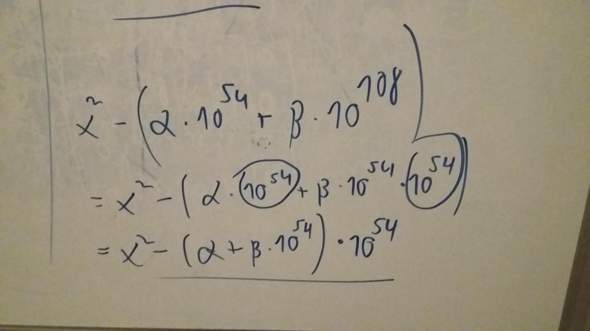 x² - (α · 10⁵⁴ + β · 10¹⁰⁸)
= x² - (α · 10⁵⁴ + β · 10⁵⁴ · 10⁵⁴)
= x² - (α + β · 10⁵⁴) · 10⁵⁴